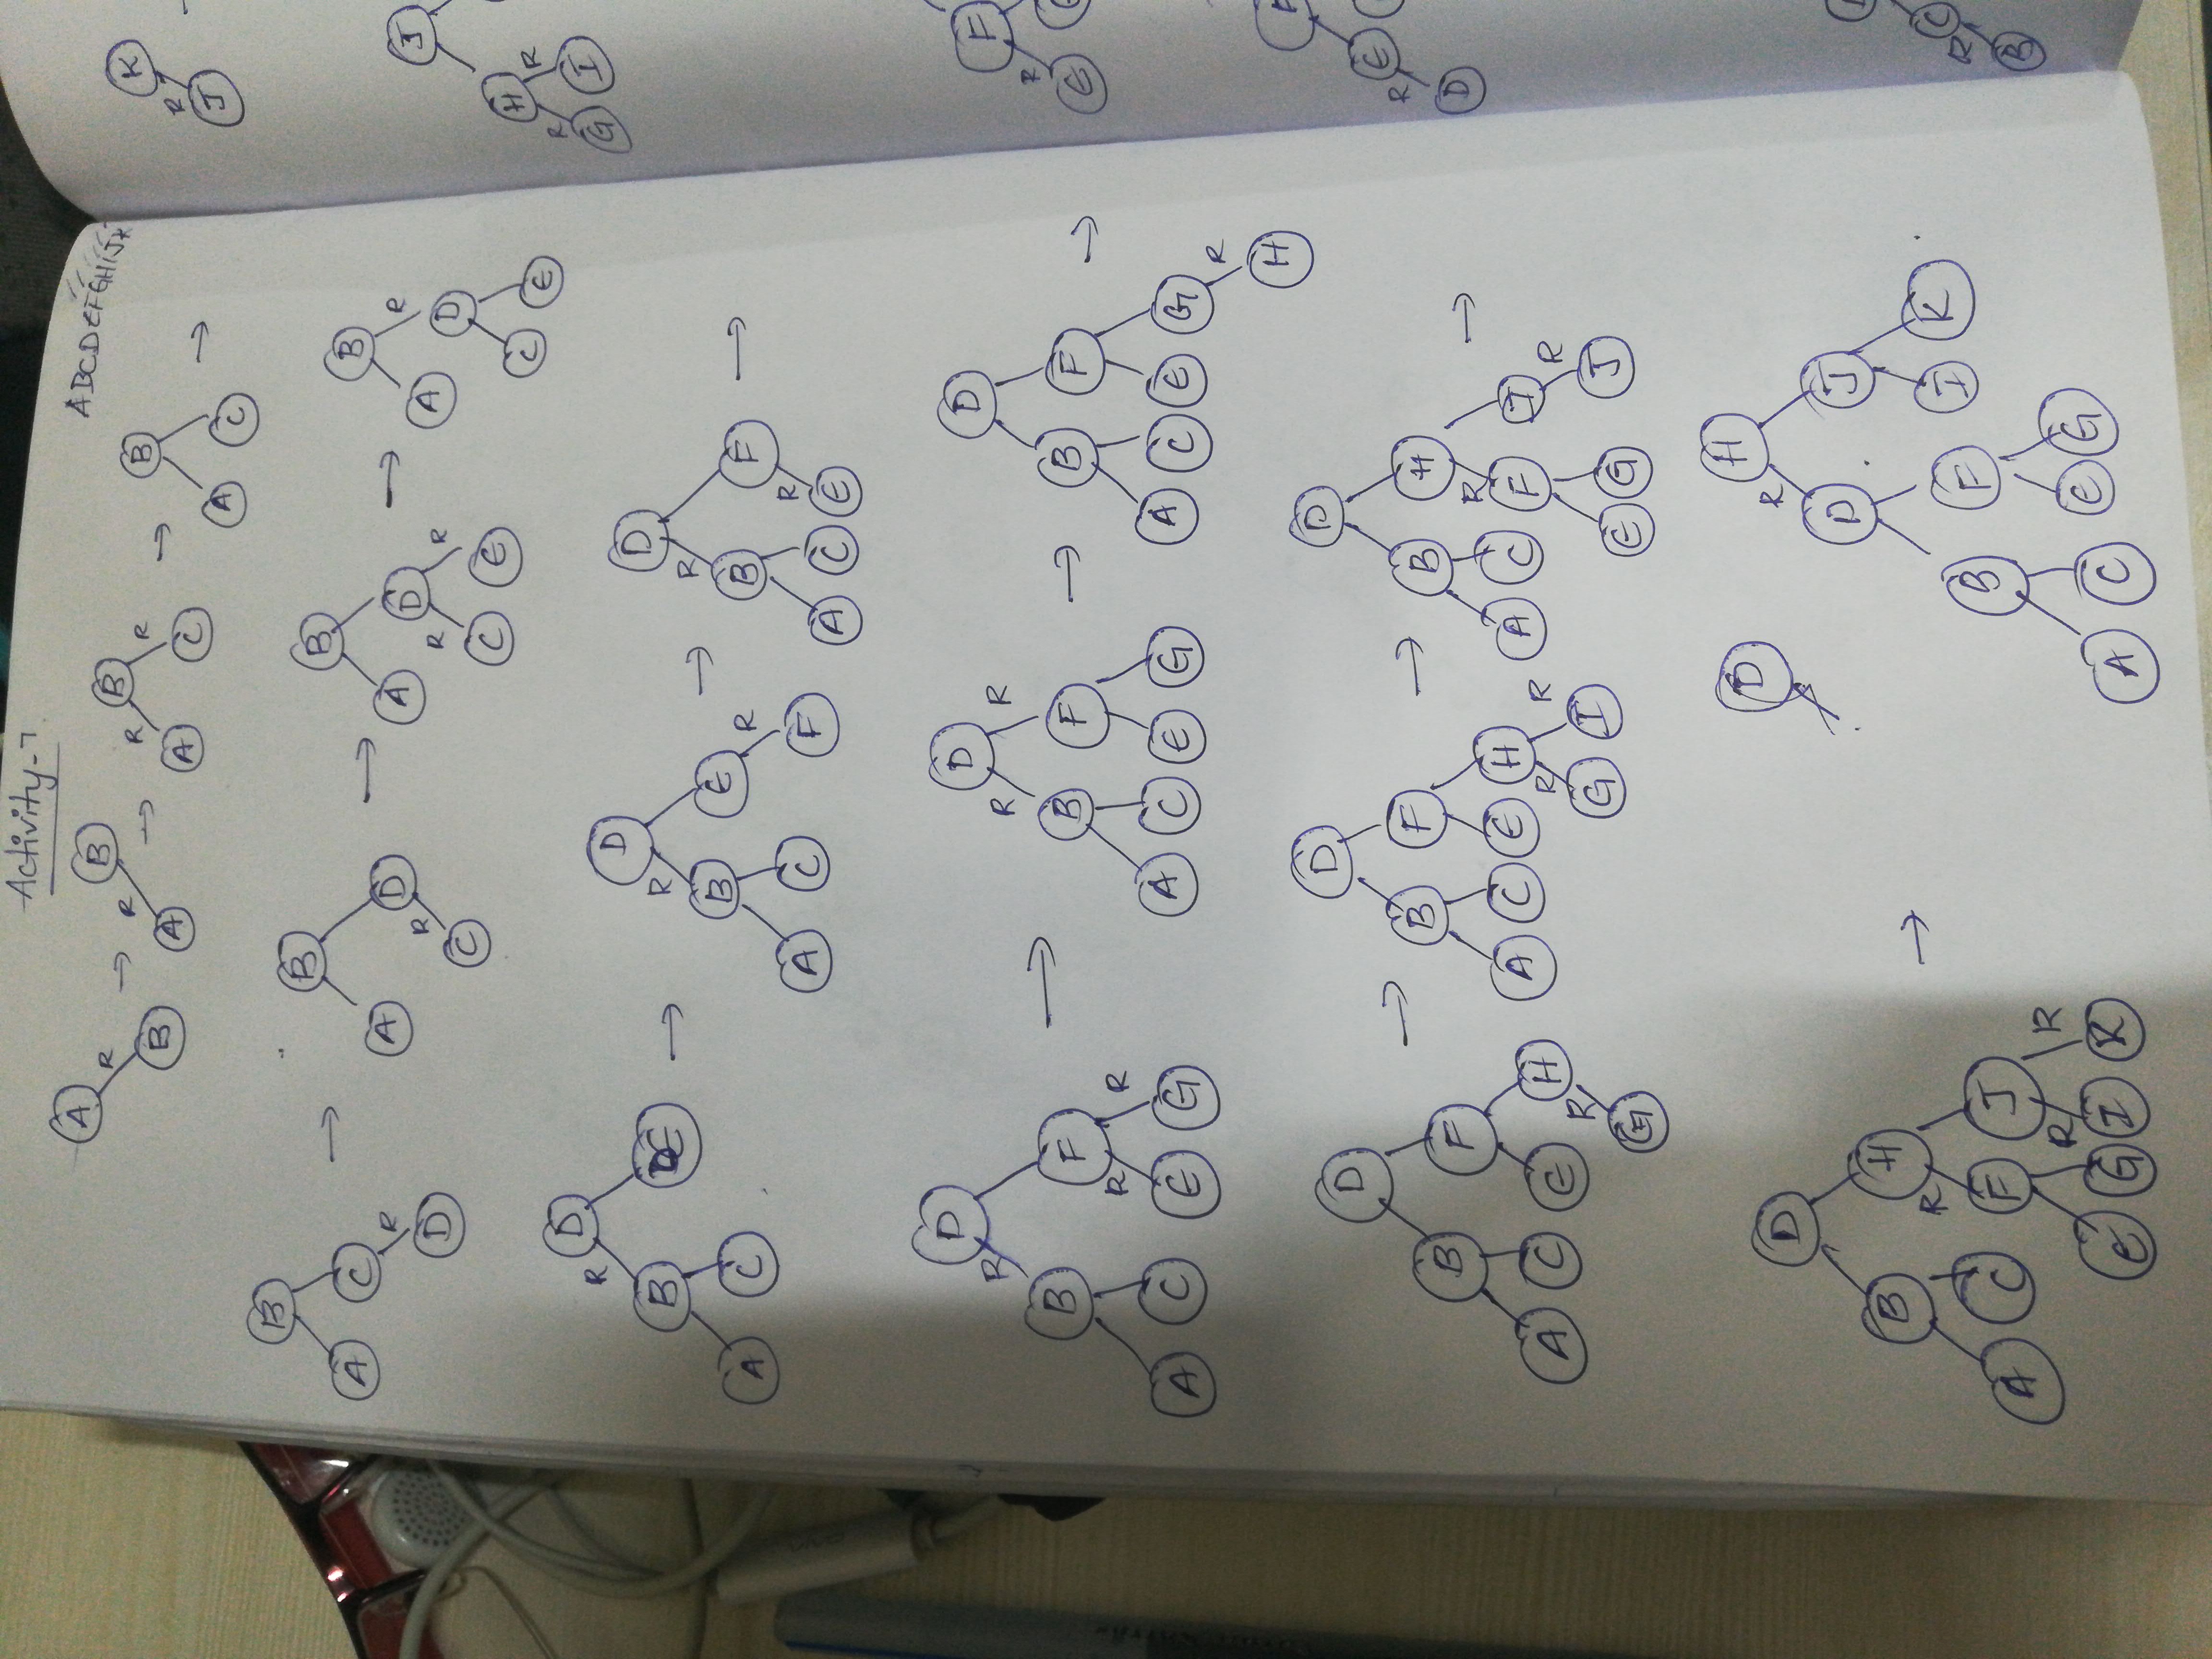 Activity-7
ABCDEFGHIJK
A R B → B R A → B R R A C → B A C →
B A C R D → B A D R C → B A D R R C E → B A R D C E
D R B E A C → D R B E A C R F → D R B F A C R E →
D R B F A C R E R G → D R R B F A C E G → D B F A C E G R H →
D B F A C E H R G → D B F A C E H R G R I → D B H A C R F I E G R J →
D B H A C R F J E G R I R K → D H R D J B F I K A C E G
K
R
J
J
H
R R
G I
F
R
E
E
R
D
C
R
B